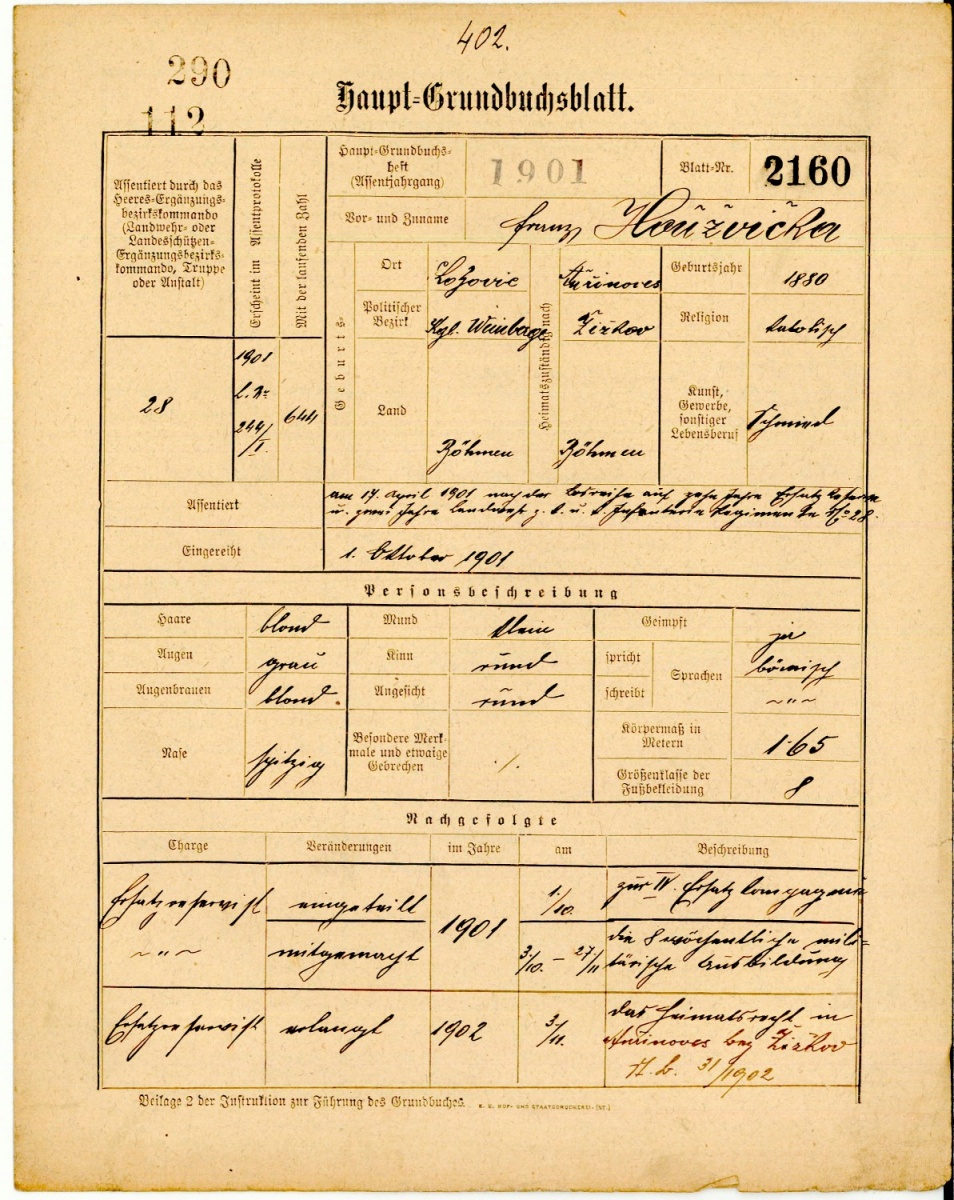 402.
290
112
Haupt-Grundbuchsblatt.
Assentiert durch das
Heeres-Ergänzungs-
bezirkskommando
(Landwehr- oder
Landesschützen-
Ergänzungsbezirks-
kommando, Truppe
oder Anstalt)
Erscheint im Assentprotokolle
Mit der laufenden Zahl
Haupt-Grundbuchs-
heft
(Assentjahrgang)
1901
Blatt-Nr.
2160
Vor- und Zuname
Franz Houžvička
Geburts-
Ort
Heimatszuständig nach
Auřinoves
Geburtsjahr
1880
Politischer
Bezirk
Kgl. Weinberge
Žižkov
Religion
katolisch
Land
Böhmen
Böhmen
Kunst,
Gewerbe,
sonstiger
Lebensberuf
Schmied
28
1901
244/I.
644
Assentiert
am 17. April 1901 nach der Losreihe auf zehn Jahre Ersatzreserve
u. zwei Jahre Landwehr z. k. u. k. Infanterie Regimente No 28.
Eingereiht
1. Oktober 1901
Personsbeschreibung
Haare
blond
Mund
klein
Geimpft
ja
Augen
grau
Kinn
rund
spricht
Sprachen
bömisch
Augenbrauen
blond.
Angesicht
rund
schreibt
~ " ~
Nase
spitzig
Besondere Merk-
male und etwaige
Gebrechen
./.
Körpermaß in
Metern
1·65
Größenklasse der
Fußbekleidung
8
Nachgefolgte
Charge
Veränderungen
im Jahre
am
Beschreibung
Ersatzreservist
eingeteilt
1901
1./10.
zur IV. Ersatzkompagnie
~ " ~
mitgemacht
3./10. – 27/11
die 8 wöchentliche mili-
tärische Ausbildung
Ersatzreservist
erlangt
1902
3./11.
das Heimatsrecht in
Auřinoves bez Žižkov
31/1902
Beilage 2 der Instruktion zur Führung des Grundbuches.
K. K. HOF- UND STAATSDRUCKEREI.